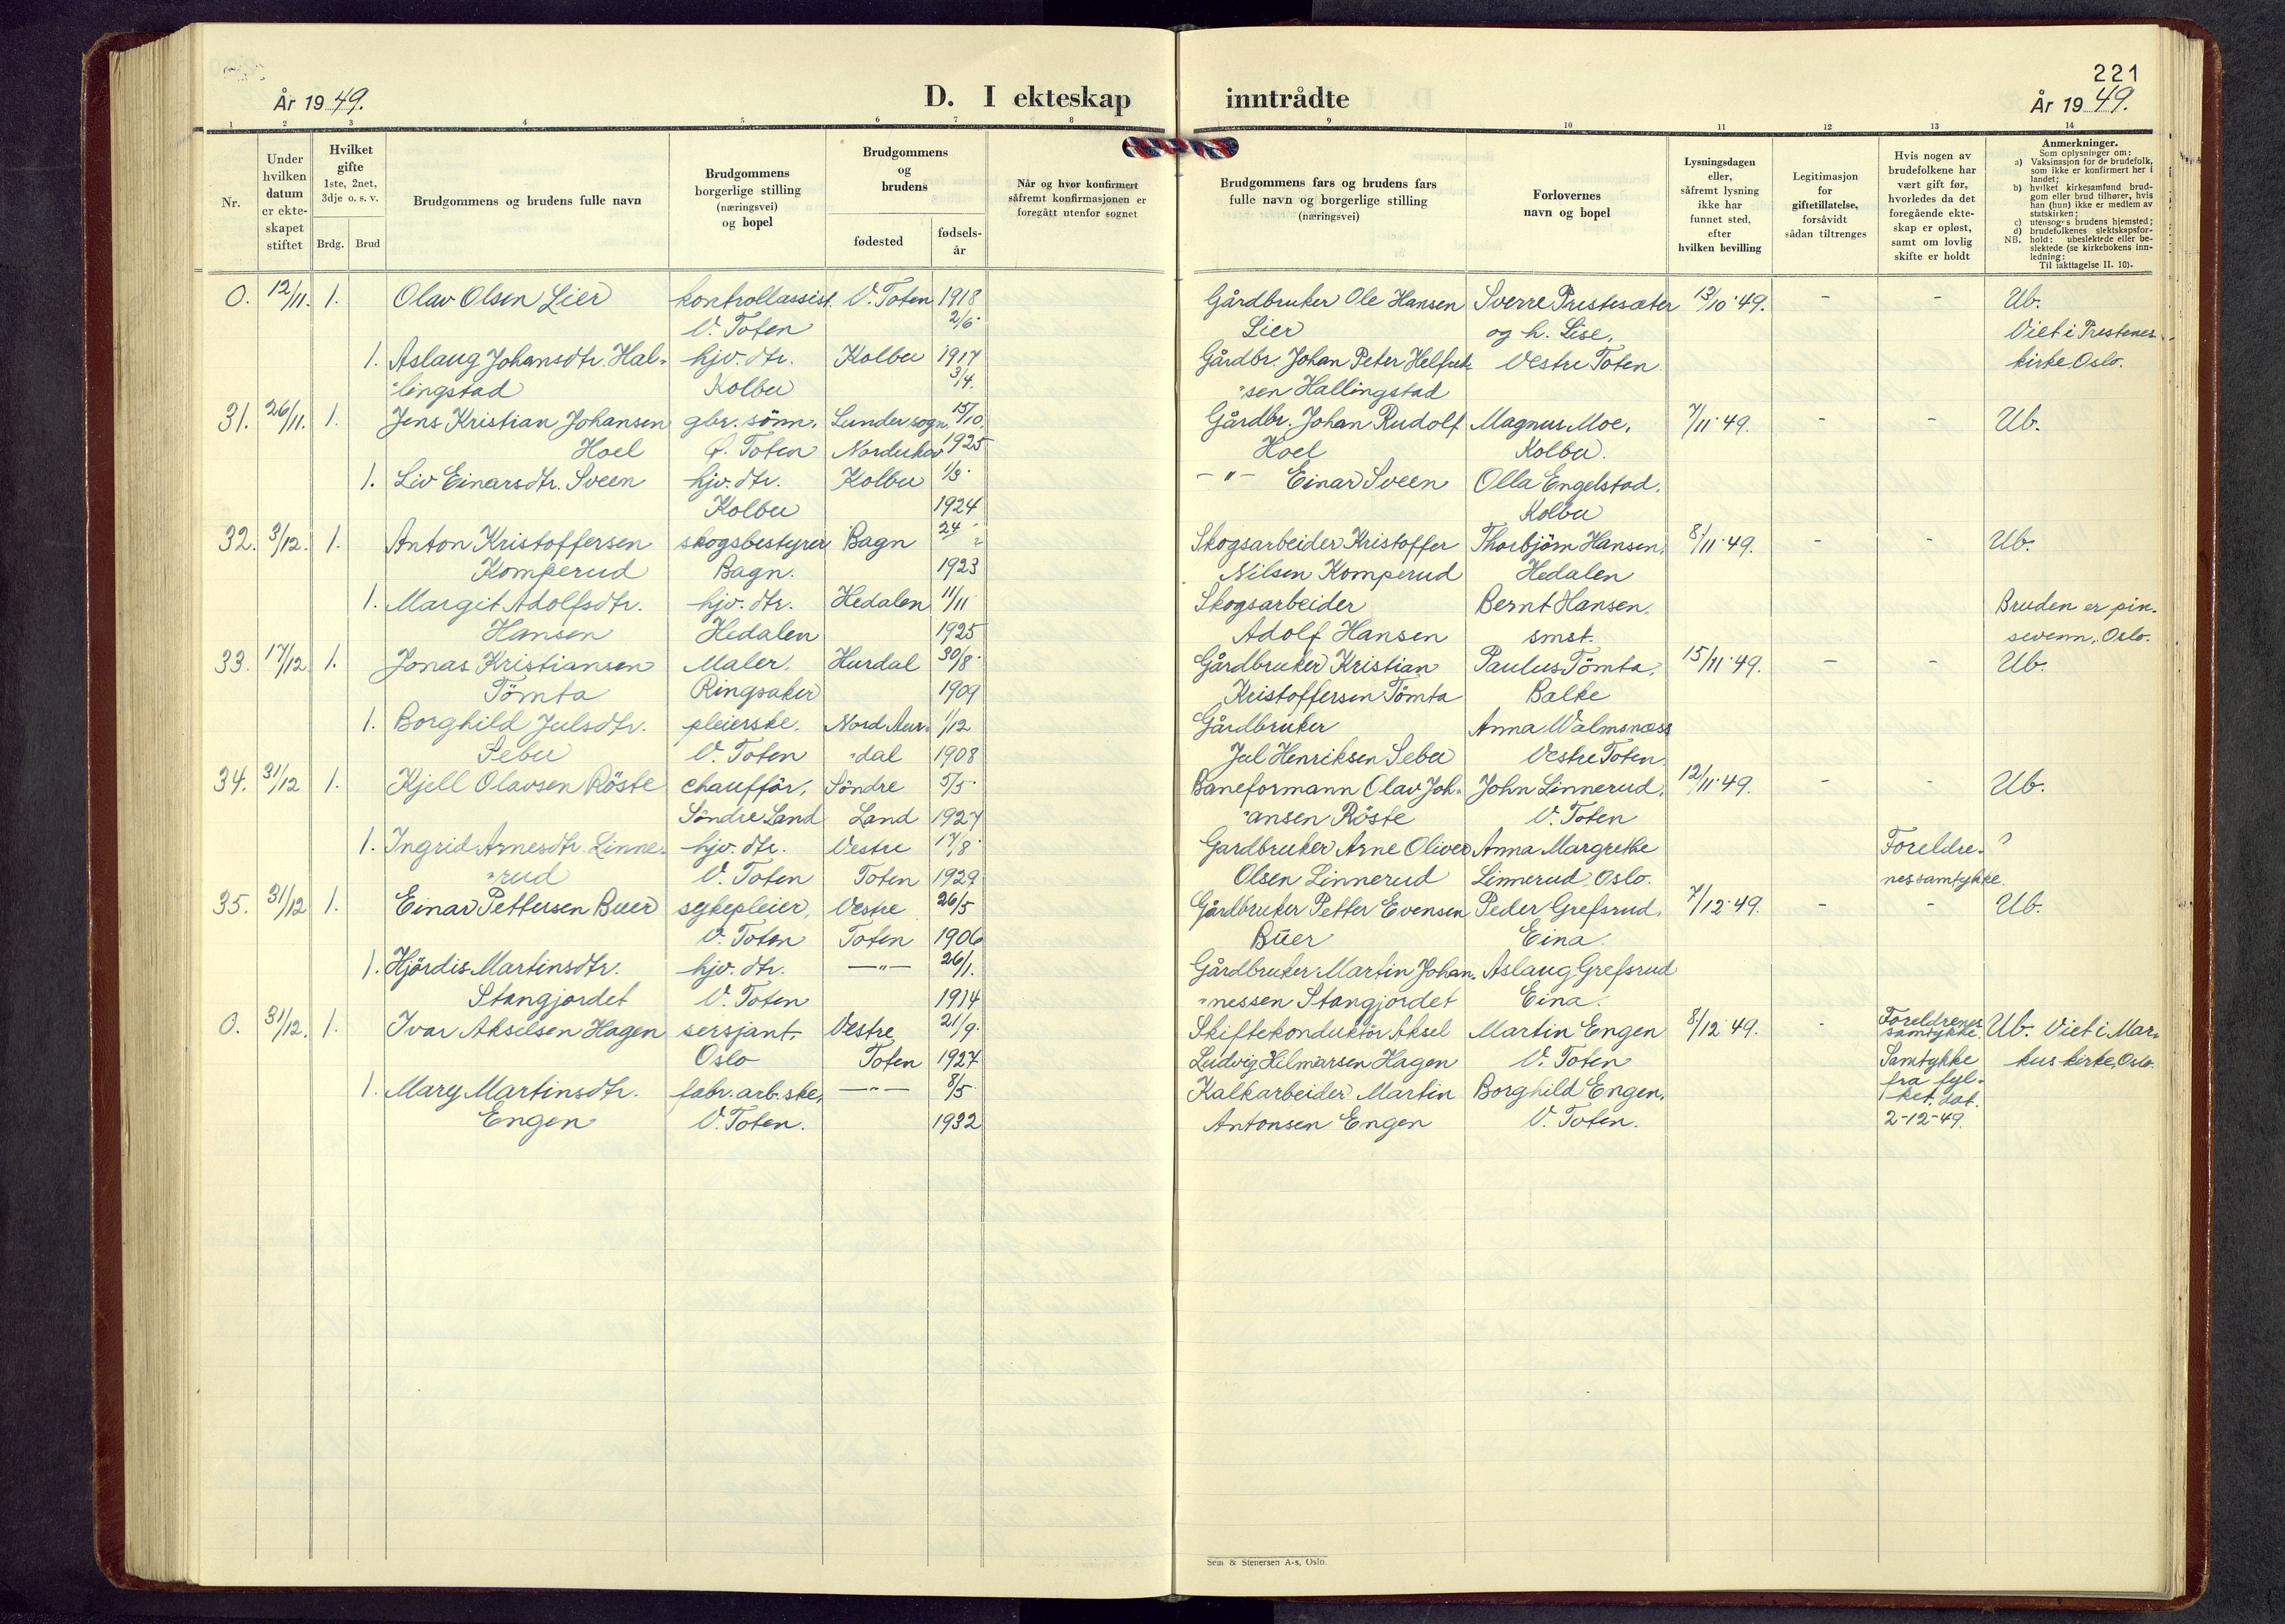 221
År 1949.
D. I ekteskap
inntrådte
År 1949.
1 2 3 4 5 6 7 8 9 10 11 12 13 14
Nr.
Under
hvilken
datum
er ekte-
skapet
stiftet
Hvilket
gifte
1ste, 2net,
3dje o. s. v.
Brdg. Brud
Brudgommens og brudens fulle navn
Brudgommens
borgerlige stilling
(næringsvei)
og bopel
Brudgommens
og
brudens
fødested
fødsels-
år
Når og hvor konfirmert
såfremt konfirmasjonen er
foregått utenfor sognet
Brudgommens fars og brudens fars
fulle navn og borgerlige stilling
(næringsvei)
Forlovernes
navn og bopel
Lysningsdagen
eller,
såfremt lysning
ikke har
funnet sted,
efter
hvilken bevilling
Legitimasjon
for
giftetillatelse,
forsåvidt
sådan tiltrenges
Hvis nogen av
brudefolkene har
vært gift før,
hvorledes da det
foregående ekte-
skap er opløst,
samt om lovlig
skifte er holdt
Anmerkninger.
Som oplysninger om:
a) Vaksinasjon for de brudefolk,
som ikke er konfirmert her i
landet;
b) hvilket kirkesamfund brud-
gom eller brud tilhører, hvis
han (hun) ikke er medlem av
statskirken;
c) utensogns brudens hjemsted;
d) brudefolkenes slektskapsfor-
NB. hold: ubeslektede eller be-
slektede (se kirkebokens inn-
ledning:
Til iakttagelse II. 10).
0. 12/11. 1. Olav Olsen Lier kontrollassist. V. Toten 1918 Gårdbruker Ole Hansen Sverre Prestesæter 13/10 49. - - Ub.
V. Toten 2/6. Lier og h. Lise, Viet i Prestenes
1. Aslaug Johansdtr. Hal- hjv. dtr. Kolbu 1917 Gårdbr. Johan Peter Helfred- Vestre Toten kirke Oslo.
"lingstad Kolbu 3/4. "sen Hallingstad
31. 26/11. 1. Jens Kristian Johansen gbr. sönn. Lunder sogn. 15/10. Gårdbr. Johan Rudolf Magnus Moe, 7/11 49. - - Ub.
Hoel Ø. Toten Norderhov 1925 Hoel Kolbu.
1. Liv Einarsdtr. Sveen hjv. dtr. Kolbu 1/3. -"- Einar Sveen Olla Engelstad.
Kolbu 1924 Kolbu
32. 3/12. 1. Anton Kristoffersen skogsbestyrer Bagn 24 Skogsarbeider Kristoffer Thorbjörn Hansen, 8/11 49. - - Ub.
Komperud Bagn. 1923 Nilsen Komperud Hedalen
1. Margit Adolfsdtr. hjv. dtr. Hedalen 11/11 Skogsarbeider Bernt Hansen. Bruden er pin-
Hansen Hedalen 1925 Adolf Hansen smst. sevenn, Oslo.
33. 17/12. 1. Jonas Kristiansen Maler. Hurdal 30/8. Gårdbruker Kristian Paulus Tömta, 15/11 49. - - Ub.
Tömta Ringsaker 1909 Kristoffersen Tömta Balke
1. Borghild Julsdtr. pleierske, Nord Aur- 1/12 Gårdbruker Anna Walmsnæss
Sebu V. Toten "dal 1908 Jul Henriksen Sebu Vestre Toten.
34. 31/12 1. Kjell Olavsen Röste chaufför, Söndre 5/5. Baneformann Olav Joh- John Linnerud, 12/11 49. - - Ub.
Söndre Land Land 1927 "ansen Röste V. Toten
1. Ingrid Arnesdtr. Linne- hjv. dtr. Vestre 17/8. Gardbruker Arne Oliver Anna Margrethe Foreldre- ?
"rud V. Toten Toten 1929 Olsen Linnerud Linnerud, Oslo. nes samtykke.
35. 31/12 1. Einar Pettersen Buer sykepleier, Vestre 26/5 Gårdbruker Petter Evensen Peder Grefsrud. 7/12 49. - - Ub.
V. Toten Toten 1906 Buer Eina.
1. Hjördis Martinsdtr. hjv. dtr. -"- 26/1. Gårdbruker Martin Johan- Aslaug Grefsrud
Stangjordet V. Toten 1914 "nessen Stangjordet Eina.
0. 31/12. 1. Ivar Akselsen Hagen sersjant, Vestre 21/9. Skiftekonduktör Aksel Martin Engen 8/12 49. - Foreldrenes samtykke. Ub. Viet i Mar-
Oslo Toten 1927 Ludvig Hilmarsen Hagen V. Toten Samtykke kus kirke, Oslo.
1. Mary Martinsdtr. fabr.arb.ske, -"- 8/5 Kalkarbeider Martin Borghild Engen, fra fyl-
ket dat.
Engen V. Toten. 1932 Antonsen Engen V. Toten. 2-12-49.
Sem & Stenersen A-s, Oslo.